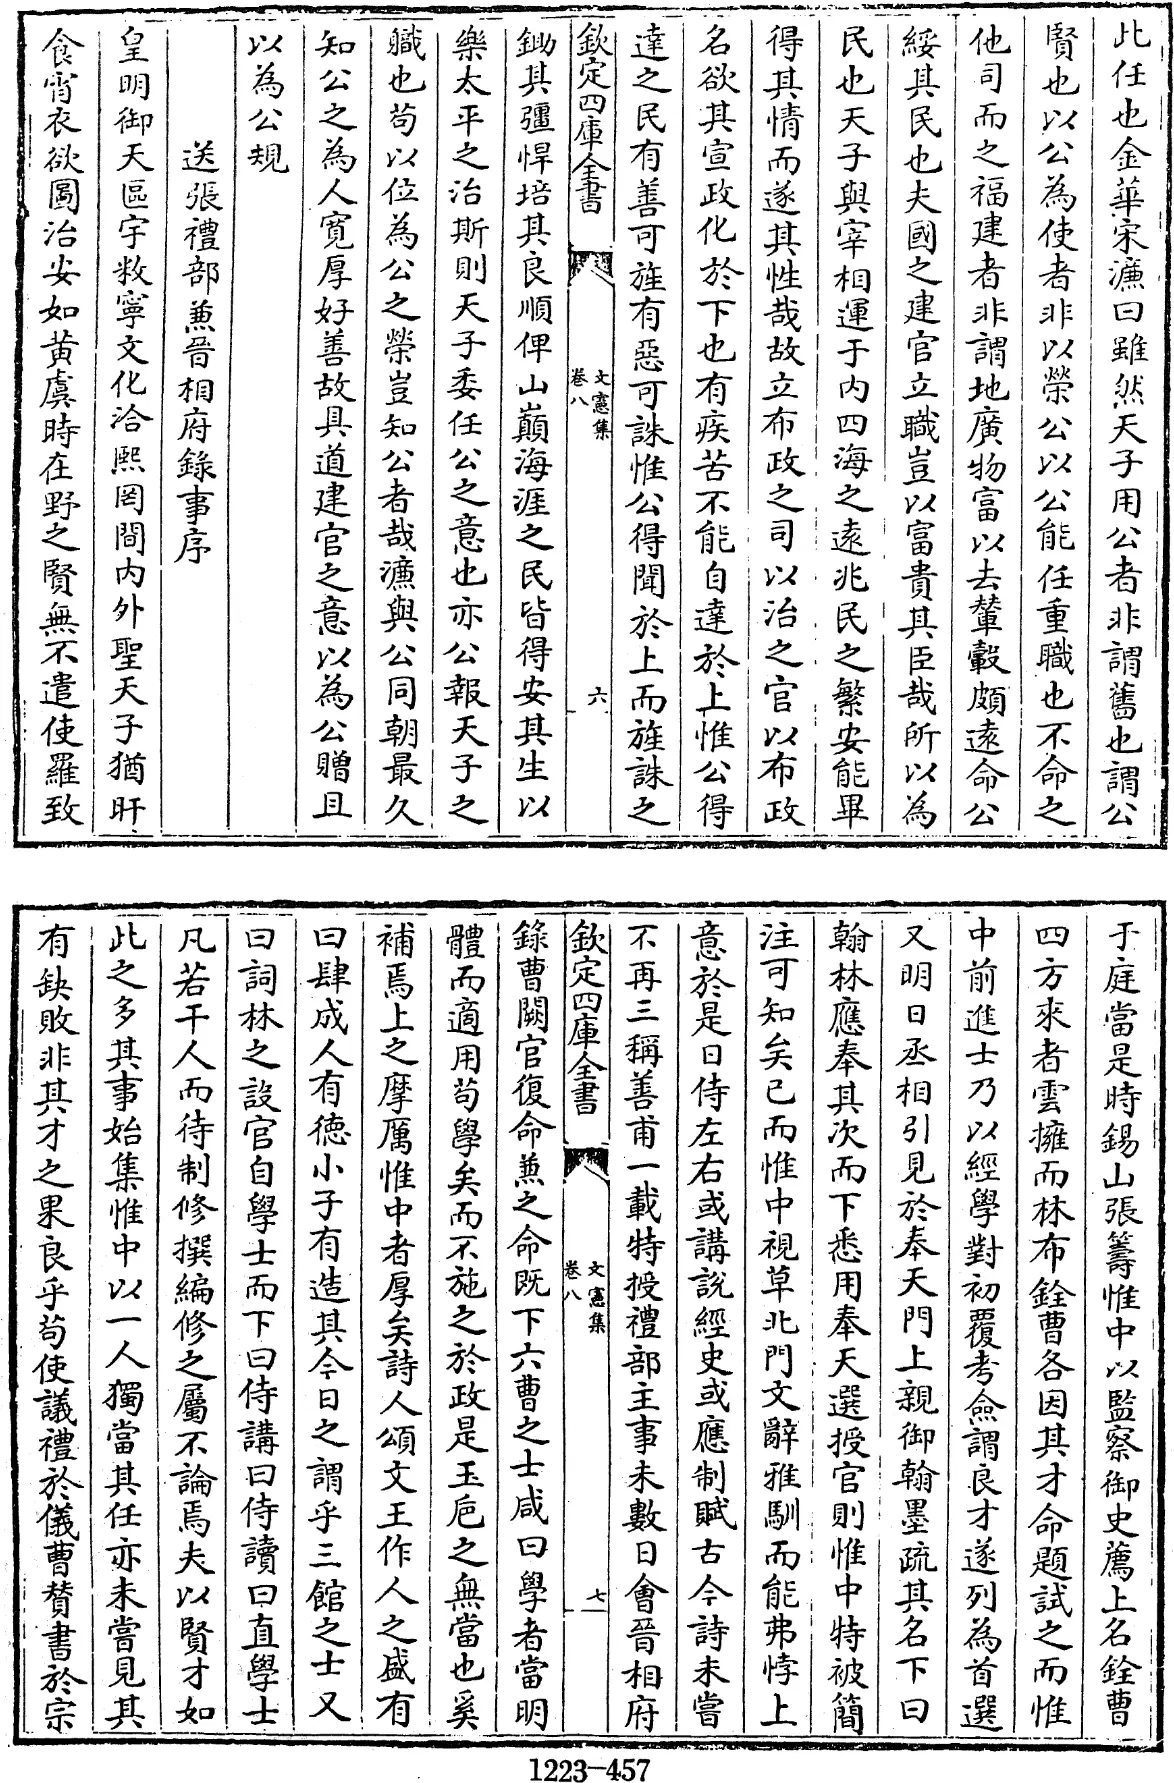 此任也金華宋濂曰雖然天子用公者非謂舊也謂公
賢也以公為使者非以榮公以公能任重職也不命之
他司而之福建者非謂地廣物富以去輦轂頗逺命公
綏其民也夫國之建官立職豈以富貴其臣哉所以為
民也天子與宰相運于内四海之逺兆民之繁安能畢
得其情而遂其性哉故立布政之司以治之官以布政
名欲其宣政化於下也有疾苦不能自達於上惟公得
達之民有善可旌有惡可誅惟公得聞於上而旌誅之
欽定四庫全書
文憲集
卷八
六
鋤其彊悍培其良順俾山巔海涯之民皆得安其生以
樂太平之治斯則天子委任公之意也亦公報天子之
職也苟以位為公之榮豈知公者哉濂與公同朝最久
知公之為人寛厚好善故具道建官之意以為公贈且
以為公規
送張禮部兼晉相府錄事序
皇明御天區宇敉寧文化洽熙罔間内外聖天子猶旰
食宵衣欲圖治安如黄虞時在野之賢無不遣使羅致
于庭當是時錫山張籌惟中以監察御史薦上名銓曹
四方來者雲擁而林布銓曹各因其才命題試之而惟
中前進士乃以經學對初覆考僉謂良才遂列為首選
又明日丞相引見於奉天門上親御翰墨疏其名下曰
翰林應奉其次而下悉用奉天選授官則惟中特被簡
注可知矣已而惟中視草北門文辭雅馴而能弗悖上
意於是日侍左右或講說經史或應制賦古今詩未嘗
不再三稱善甫一載特授禮部主事未數日會晉相府
欽定四庫全書
文憲集
卷八
七
錄曹闕官復命兼之命既下六曹之士咸曰學者當明
體而適用苟學矣而不施之於政是玉巵之無當也奚
補焉上之摩厲惟中者厚矣詩人頌文王作人之盛有
曰肆成人有徳小子有造其今日之謂乎三館之士又
曰詞林之設官自學士而下曰侍講曰侍讀曰直學士
凡若干人而待制修撰編修之屬不論焉夫以賢才如
此之多其事始集惟中以一人獨當其任亦未嘗見其
有缺敗非其才之果良乎苟使議禮於儀曹贊書於宗
1223-457